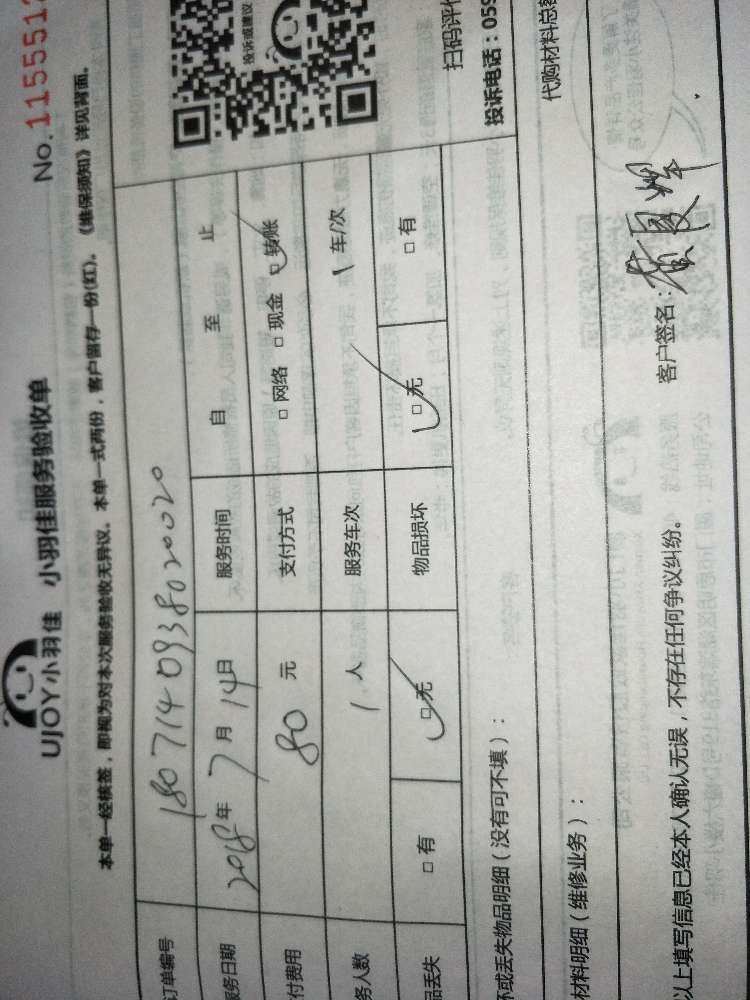 No.1155512
UJOY小羽佳 小羽佳服务验收单
本单一经核签，即视为对本次服务验收无异议。本单一式两份，客户留存一份(红)。《维保须知》详见背面。
投诉或建议
扫码评
投诉电话：059
订单编号 1807140938020020
服务日期 2018年7月14日 服务时间 自 至 止
付费用 80元 支付方式 □网络 □现金 □转账
务人数 1人 服务车次 1车/次
品丢失 □有 □无 物品损坏 □无 □有
坏或丢失物品明细（没有可不填）：
代购材料总
材料明细（维修业务）：
以上填写信息已经本人确认无误，不存在任何争议纠纷。 客户签名：